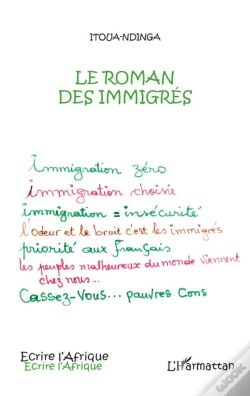 ITOUA-NDINGA
LE ROMAN
DES IMMIGRÉS
immigration zéro
immigration choisie
immigration = insécurité
l'odeur et le bruit c'est les immigrés
priorité aux français
les peuples malheureux du monde viennent
chez nous...
Cassez-vous... pauvres cons
Ecrire l'Afrique
Ecrire l'Afrique
L'Harmattan
wook